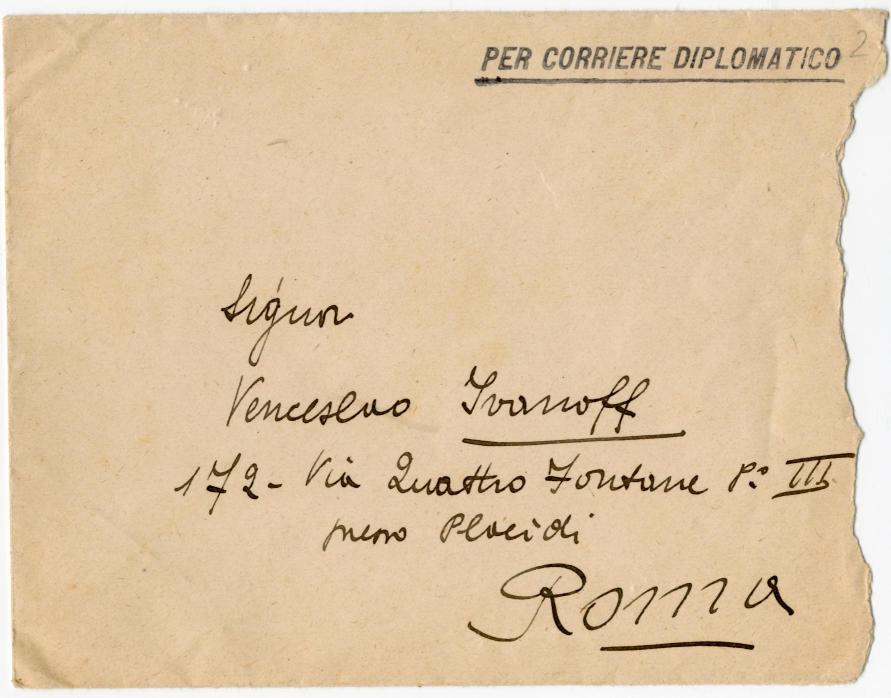 PER CORRIERE DIPLOMATICO 2
Signor
Venceslao Ivanoff
172 - Via Quattro Fontane P.º III
presso Placidi
Roma